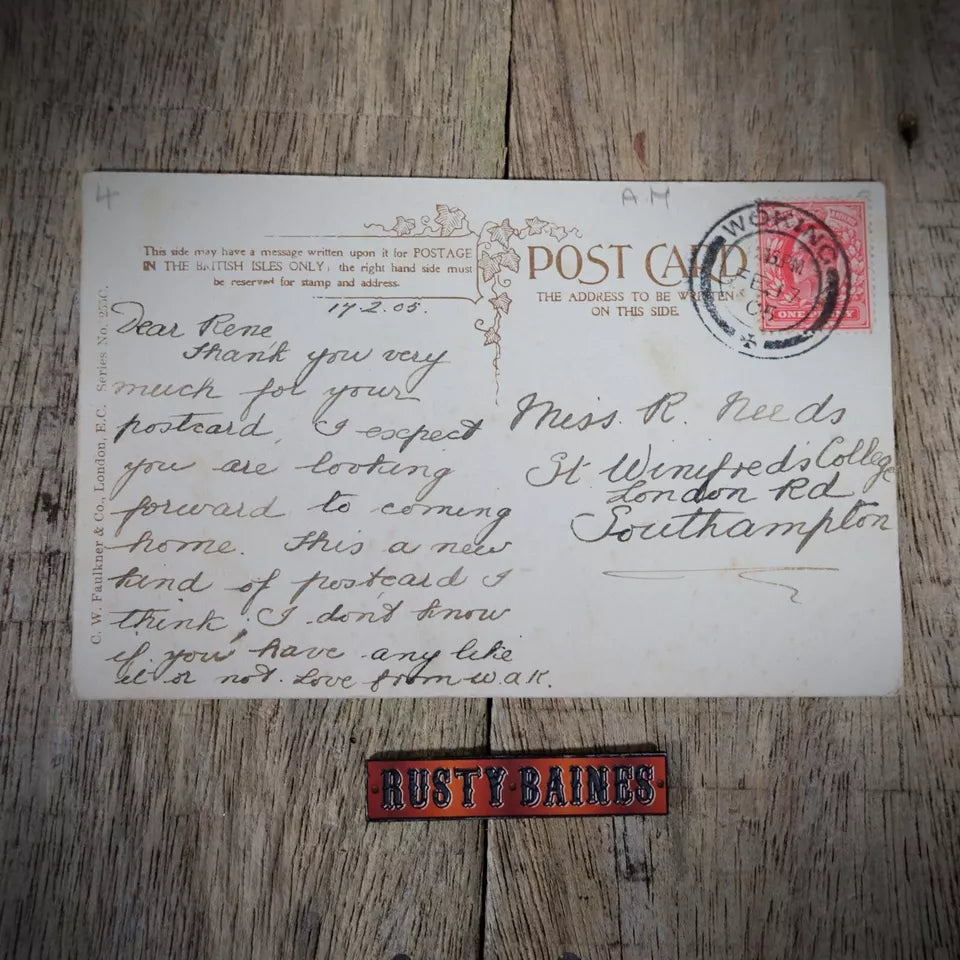 4
AM
This side may have a message written upon it for POSTAGE
IN THE BRITISH ISLES ONLY; the right hand side must
be reserved for stamp and address.
POST CARD
THE ADDRESS TO BE WRITTEN
ON THIS SIDE.
WOKING
PM
FEB 17
05
ONE PENNY
C. W. Faulkner & Co., London, E.C. Series No. 255C.
17.2.05.
Dear Rene
Thank you very
much for your
postcard, I expect
you are looking
forward to coming
home. This a new
kind of postcard I
think. I don't know
if you have any like
it or not. Love from W.A.K.
Miss. R. Needs
St Winifreds College
London Rd
Southampton
RUSTY·BAINES